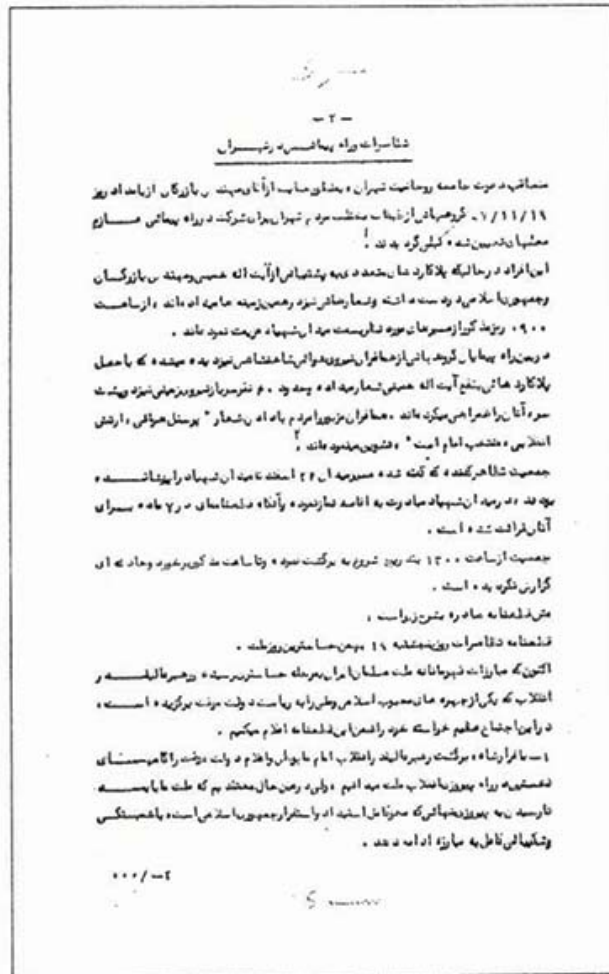 -۲-
تظاهرات و راه پیمائی در تهران
متعاقب دعوت جامعه روحانیت تهران، بمنظور حمایت از آقای مهندس بازرگان از بامداد روز
۷/۱۱/۱۹ گروههائی از طبقات مختلف مردم تهران برای شرکت در راه پیمائی عازم
محلهای تعیین شده قبلی گردیدند !
این افراد در حالیکه پلاکاردهای متعددی به پشتیبانی از آیت اله خمینی و مهندس بازرگان
و جمهوری اسلامی در دست داشته و شعارهائی نیز در همین زمینه میداده اند، از ساعت
۰۹۰۰ روز مذکور از مسیرهای مورد نظر بسمت میدان شهیاد عزیمت نموده اند .
در بین راه پیمایان گروههائی از همافران نیروی هوائی شاهنشاهی نیز دیده میشده که با حمل
پلاکاردهائی بنفع آیت اله خمینی شعار میداده و حدود ۰ ۴ نفر سرباز نیروی زمینی نیز در پشت
سر آنان را همراهی میکرده اند . همافران مزبور را مردم با دادن شعار " پرسنل هوائی، ارتش
انقلابی، منتخب امام است " تشویق مینموده اند ۲
جمعیت تظاهر کننده که گفته شده مسیر میدان ۲۴ اسفند تا میدان شهیاد را پوشانده
بودند، در میدان شهیاد مبادرت به اقامه نماز نموده و آنگاه قطعنامه ای در ۷ ماده برای
آنان قرائت شده است .
جمعیت از ساعت ۱۳۰۰ بتدریج شروع به برگشت نموده و تا ساعت مذکور برخورد و حادثه ای
گزارش نگردیده است .
متن قطعنامه صادره بشرح زیر است :
قطعنامه تظاهرات روز پنجشنبه ۱۹ بهمن حساسترین روز ملت .
اکنون که مبارزات قهرمانانه ملت مسلمان ایران بمرحله حساستری رسیده و رهبر عالیقدر
انقلاب که یکی از چهره های محبوب اسلامی و ملی را به ریاست دولت موقت برگزیده است،
در این اجتماع عظیم خواسته خود را ضمن این قطعنامه اعلام میکنیم .
۱- با فرار شاه، برگشت رهبر عالیقدر انقلاب امام خمینی و اعلام دولت موقت را گامهای
نخستین در راه پیروزی انقلاب ملت میدانیم، ولی در عین حال معتقدیم که ملت ما باید
تا رسیدن به پیروزی نهائی که محو کامل استبداد و استقرار جمهوری اسلامی است، با همبستگی
و شکیبائی کامل به مبارزه ادامه دهد .
۰۰۰/-۴